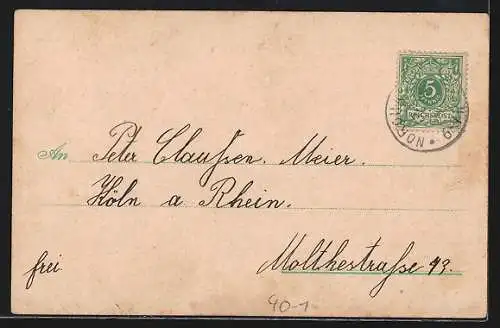 5
PFENNIG
REICHSPOST
NOR
An Peter Claußen. Meier.
Köln a Rhein.
frei
Molthestraße 93.
40-1